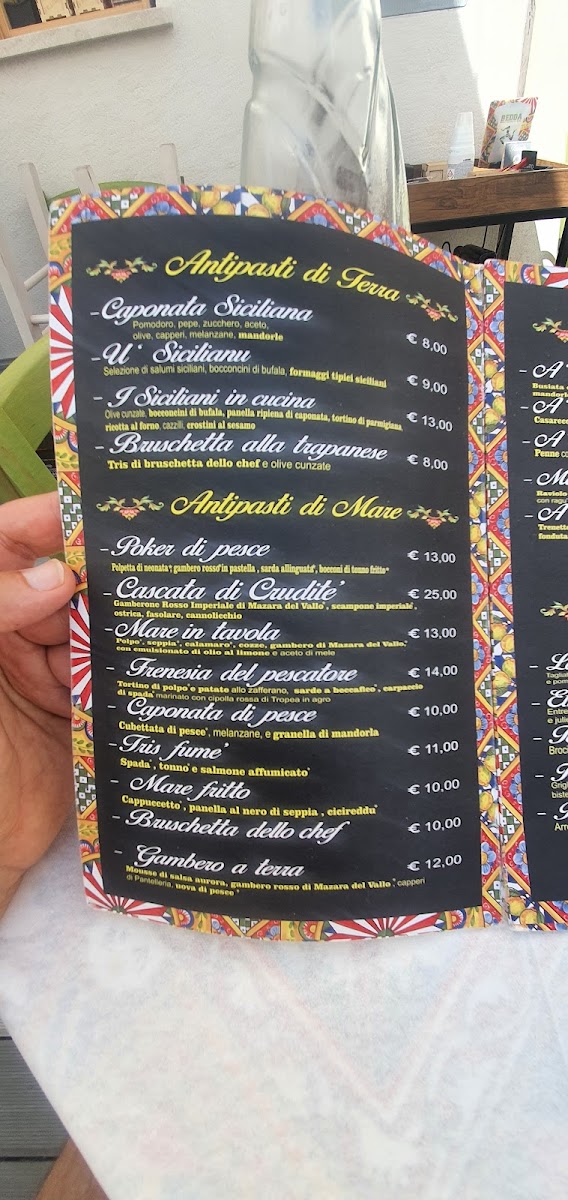 HEDDA
Antipasti di Terra
-Caponata Siciliana
Pomodoro, pepe, zucchero, aceto,
olive, capperi, melanzane, mandorle
€ 8,00
-U' Sicilianu
Selezione di salumi siciliani, bocconcini di bufala, formaggi tipici siciliani
€ 9,00
-I Siciliani in cucina
Olive cunzate, bocconcini di bufala, panella ripiena di caponata, tortino di parmigiana,
ricotta al forno, cazzilli, crostini al sesamo
€ 13,00
-Bruschetta alla trapanese
Tris di bruschetta dello chef e olive cunzate
€ 8,00
Antipasti di Mare
-Poker di pesce
Polpetta di neonata*, gambero rosso* in pastella, sarda allinguata*, bocconi di tonno fritto*
€ 13,00
-Cascata di Crudite'
Gamberone Rosso Imperiale di Mazara del Vallo*, scampone imperiale*,
ostrica, fasolare, cannolicchio
€ 25,00
-Mare in tavola
Polpo*, seppia*, calamaro*, cozze, gambero di Mazara del Vallo*
con emulsionato di olio al limone e aceto di mele
€ 13,00
- Frenesia del pescatore
Tortino di polpo e patate allo zafferano, sarde a beccafico*, carpaccio
di spada* marinato con cipolla rossa di Tropea in agro
€ 14,00
- Caponata di pesce
Cubettata di pesce*, melanzane, e granella di mandorla
€ 10,00
-Tris fume'
Spada*, tonno* e salmone affumicato*
€ 11,00
- Mare fritto
Cappuccetto*, panella al nero di seppia, cicireddu*
€ 10,00
- Bruschetta dello chef
€ 10,00
- Gambero a terra
Mousse di salsa aurora, gambero rosso di Mazara del Vallo*, capperi
di Pantelleria, uova di pesce*
€ 12,00
- A
Busiata
mandorl
- A
Casarec
- A
Penne co
- M
Raviolo
con ragu'
- A
Trenett
fonduta
- L
Tagliat
e pom
- E
Entre
e juli
Broc
Grig
biste
Arr